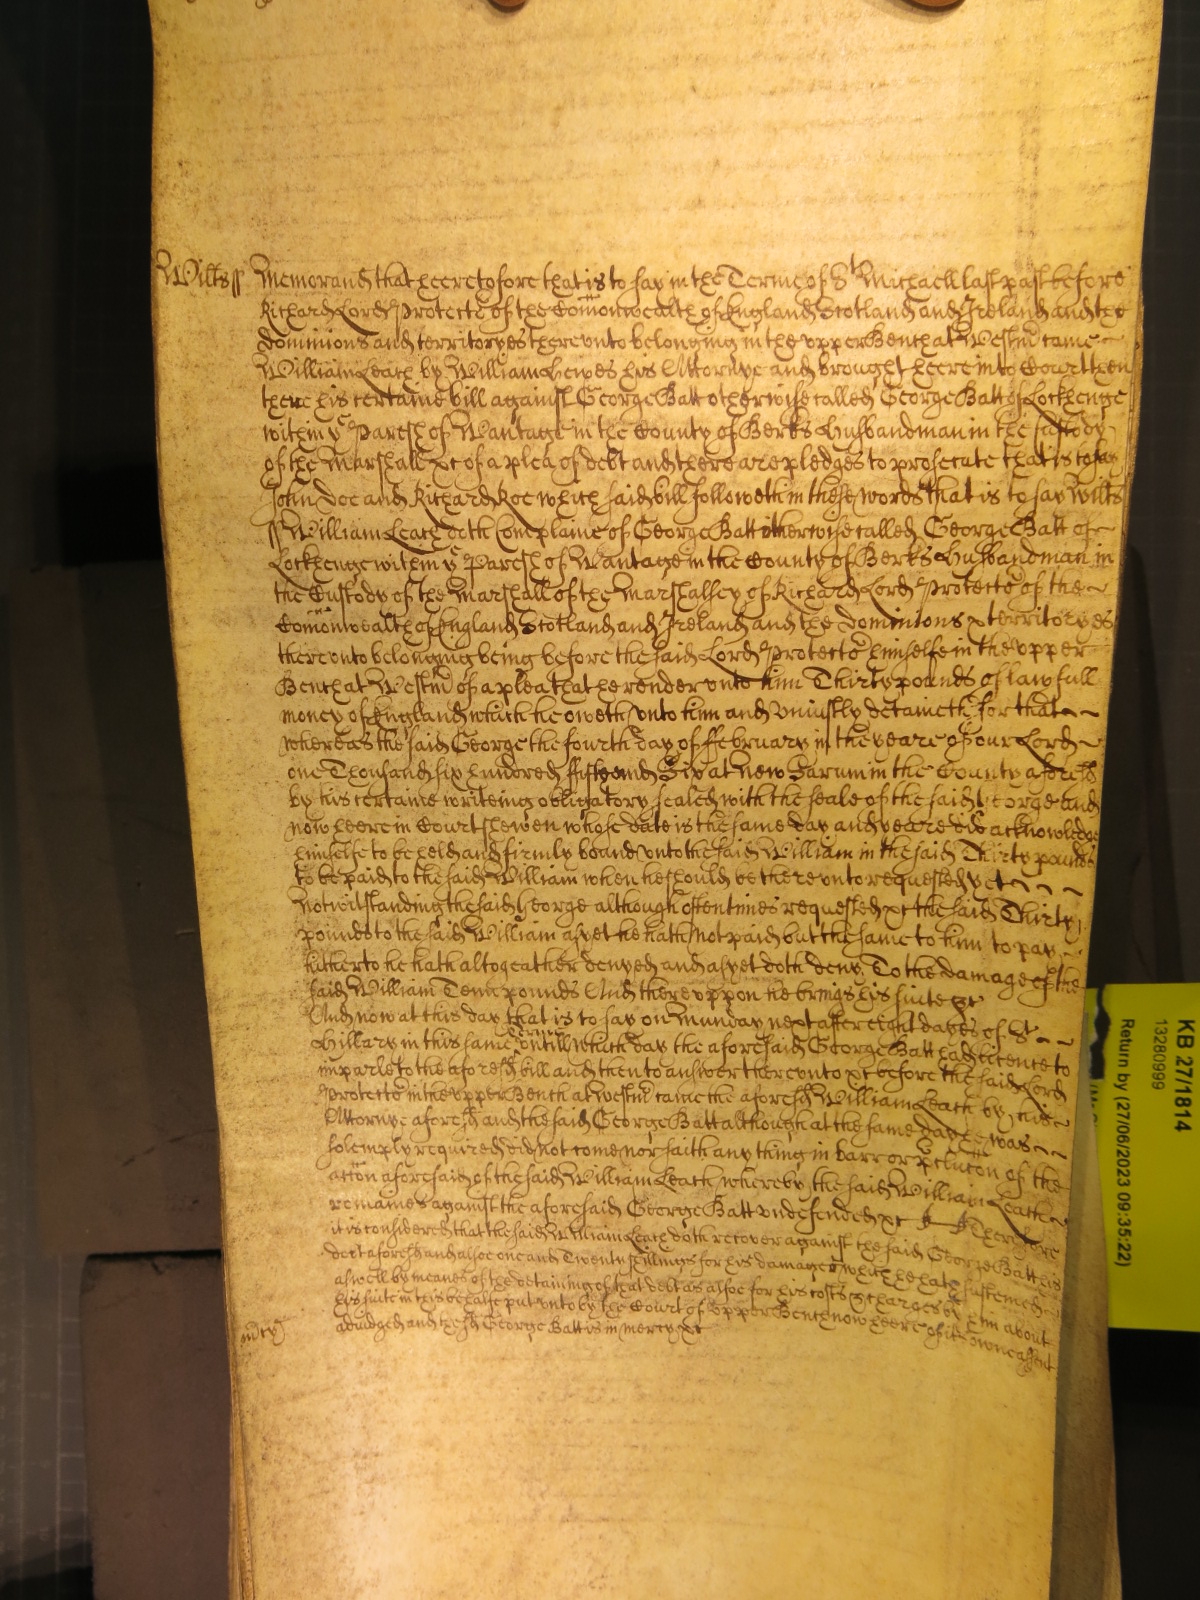 Wilts ss Memorand that heeretofore that is to say in the Terme of St Michaell last past before
Richard Lord Protector of the Comonwealth of England Scotland and Ireland and the
dominions and territoryes thereunto belonging in the upper Bench at Westmr came
William Leach by William Hewes his Attornye and brought heere into Court then
there his certaine bill against George Batt otherwise called George Batt of Lockenge
within ye Parish of Wantage in the County of Berks Husbandman in the Custody
of the Marshall &c of a plea of debt and there are pledges to prosecute that is to say
John Doe and Richard Roe which said bill followeth in these words that is to say Wilts
ss William Leach doth Complaine of George Batt otherwise called George Batt of
Lockenge within ye Parish of Wantage in the County of Berks Husbandman in
the Custody of the Marshall of the Marshalsey of Richard Lord Protector of the
Comonwealth of England Scotland and Ireland and the dominions & territoryes
thereunto belonging being before the said Lord Protector himselfe in the upper
Bench at Westmr of a plea that he render unto him Thirty pounds of lawfull
money of England which he oweth unto him and uniustly detaineth for that
whereas the said George the fourth day of ffebruary in the yeare of our Lord
one Thousand six hundred fiftie and Six at new Sarum in the County aforesd
by his certaine writeing obligatory sealed with the seale of the said George and
now heere in Court shewen whose date is the same day and yeare did acknowledge
himselfe to be held and firmly bound unto the said William in the said Thirty pounds
to be paid to the said William when he should be thereunto requested yet
Notwithstanding the said George although oftentimes requested &c the said Thirty
pounds to the said William as yet he hath not paid but the same to him to pay
hitherto he hath altogeather denyed and as yet doth deny To the damage of the
said William Tenn pounds And thereuppon he brings his suite &c
And now at this day that is to say on Munday next after eight dayes of St
Hillary in this same Terme untill which day the aforesaid George Batt had licence to
imparle to the aforesd bill and then to answer thereunto &c before the said Lord
Protector in the upper Bench at Westmr came the aforesd William Leach by his
Attornye aforesd and the said George Batt although at the same day he was
solemply required did not come nor saith any thing in barr or pclucon of the
accon aforesaid of the said William Leach whereby the said William Leach
remaines against the aforesaid George Batt undefended &c Therefore
it is considered that the said William Leach doth recover against the said George Batt his
debt aforesd and alsoe one and Twenty shillings for his damages which he hath susteined
aswell by meanes of the detaining of that debt as alsoe for his costs & charges by him about
his suite in this behalfe put unto by the Court of Upper Bench now heere of its owne assent
adiudged and the sd George Batt is in mercy &c
mcy
KB 27/1814
13280999
Return by (27/06/2023 09:35:22)